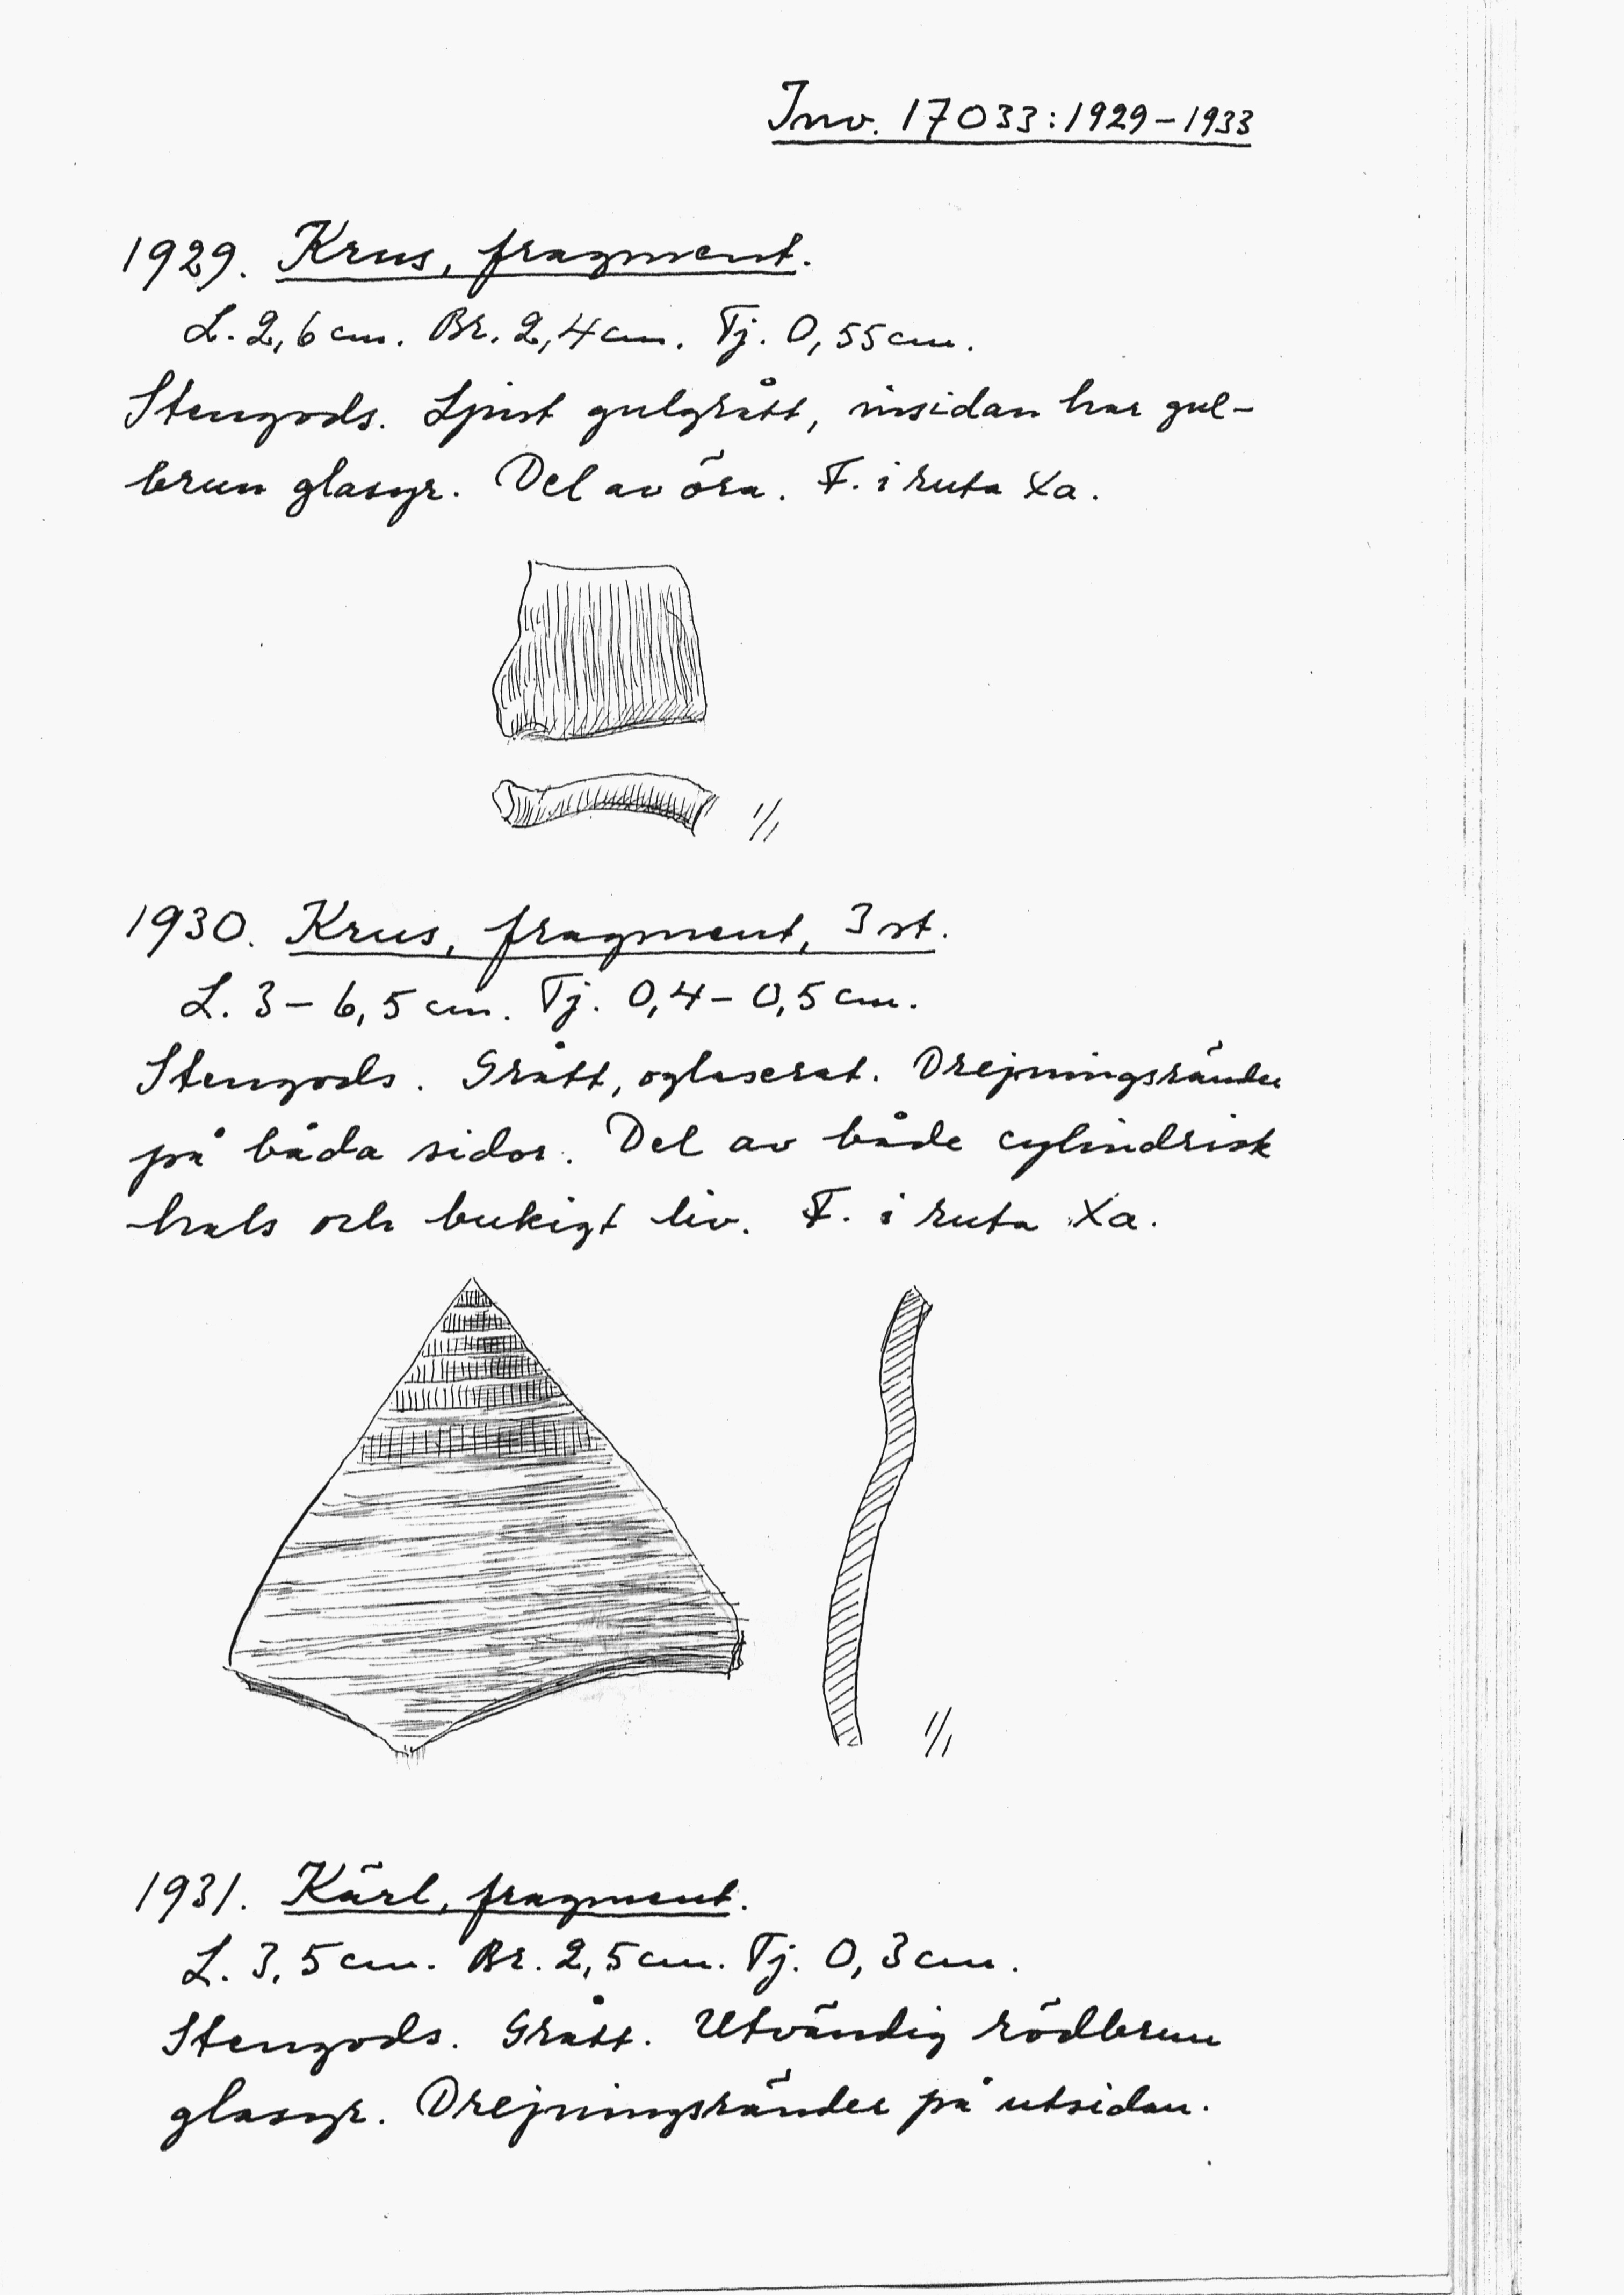 Inv. 17033:1929-1933
1929. Krus, fragment.
L. 2,6 cm. Br. 2,4 cm. Tj. 0,55 cm.
Stengods. Ljust gulgrått, insidan har gul-
brun glasyr. Del av öra. F. i ruta Xa.
1/1
1930. Krus, fragment, 3 st.
L. 3-6,5 cm. Tj. 0,4-0,5 cm.
Stengods. Grått, oglaserat. Drejningsränder
på båda sidor. Del av både cylindrisk
hals och bukigt liv. F. i ruta Xa.
1/1
1931. Kärl, fragment.
L. 3,5 cm. Br. 2,5 cm. Tj. 0,3 cm.
Stengods. Grått. Utvändig rödbrun
glasyr. Drejningsränder på utsidan.